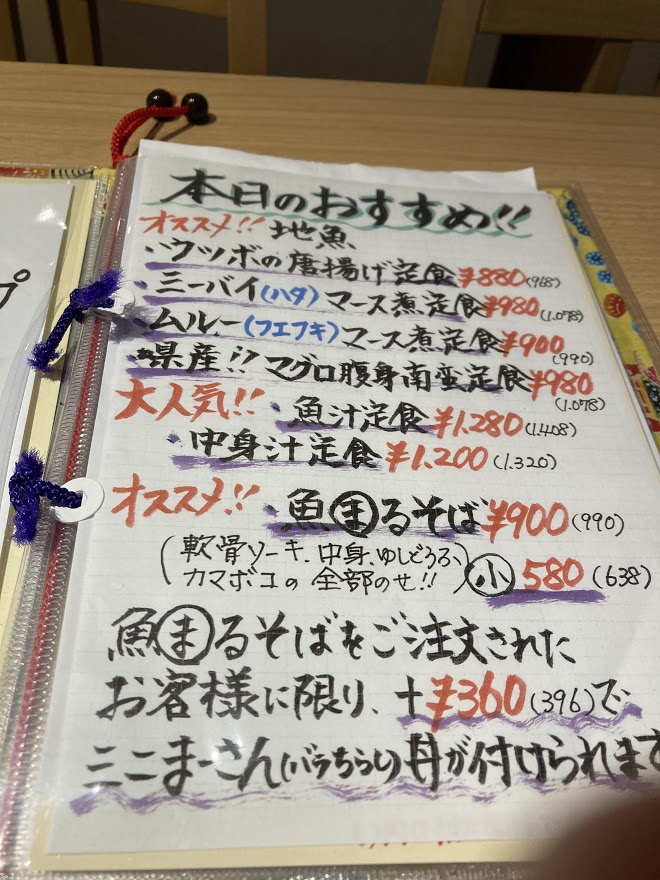 本日のおすすめ!!
オススメ!! 地魚
・ウツボの唐揚げ定食 ¥880(968)
・ミーバイ(ハタ)マース煮定食 ¥980(1.078)
・ムルー(フエフキ)マース煮定食 ¥900(990)
・県産!! マグロ腹身南蛮定食 ¥980(1.078)
大人気!!・魚汁定食 ¥1.280(1.408)
・中身汁定食 ¥1.200(1.320)
オススメ!!・魚まるそば ¥900(990)
(軟骨ソーキ、中身、ゆしどうふ、
カマボコの全部のせ!!) 小 580(638)
魚まるそばをご注文された
お客様に限り、+¥360(396)で
ミニまーさん(バラちらし)丼が付けられます
プ